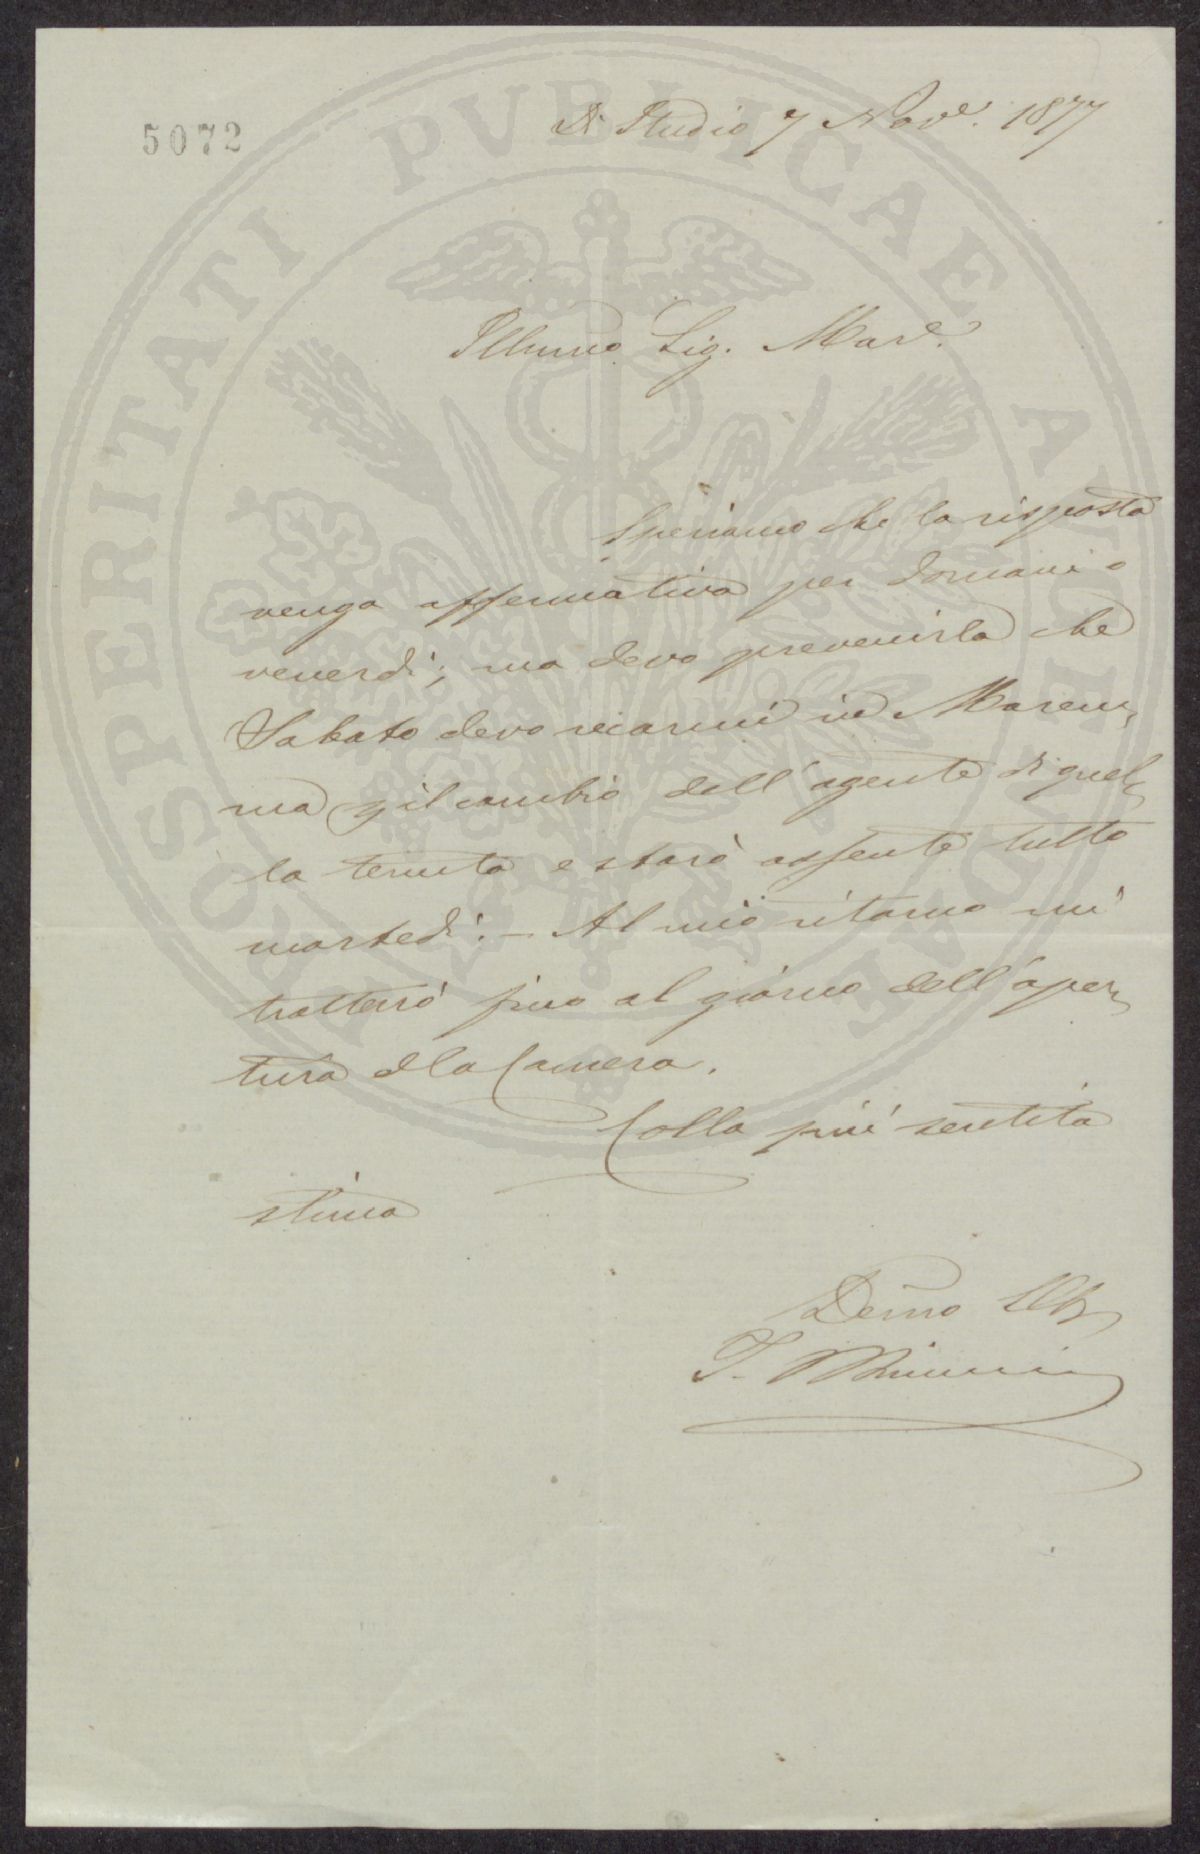 5072
Di Studio 7 Nov.e 1877
Illmo Sig. Mar.e
Speriamo che la risposta
venga affermativa per domani o
venerdì; ma devo prevenirla che
Sabato devo recarmi in Marem,
ma p il cambio dell'agente di quel,
la tenuta e starò assente tutto
martedì. — Al mio ritorno mi
tratterrò fino al giorno dell'aper,
tura dla Camera.
Colla più sentita
stima
Devmo Obb
PROSPERITATI PVBLICAE AVGENDAE